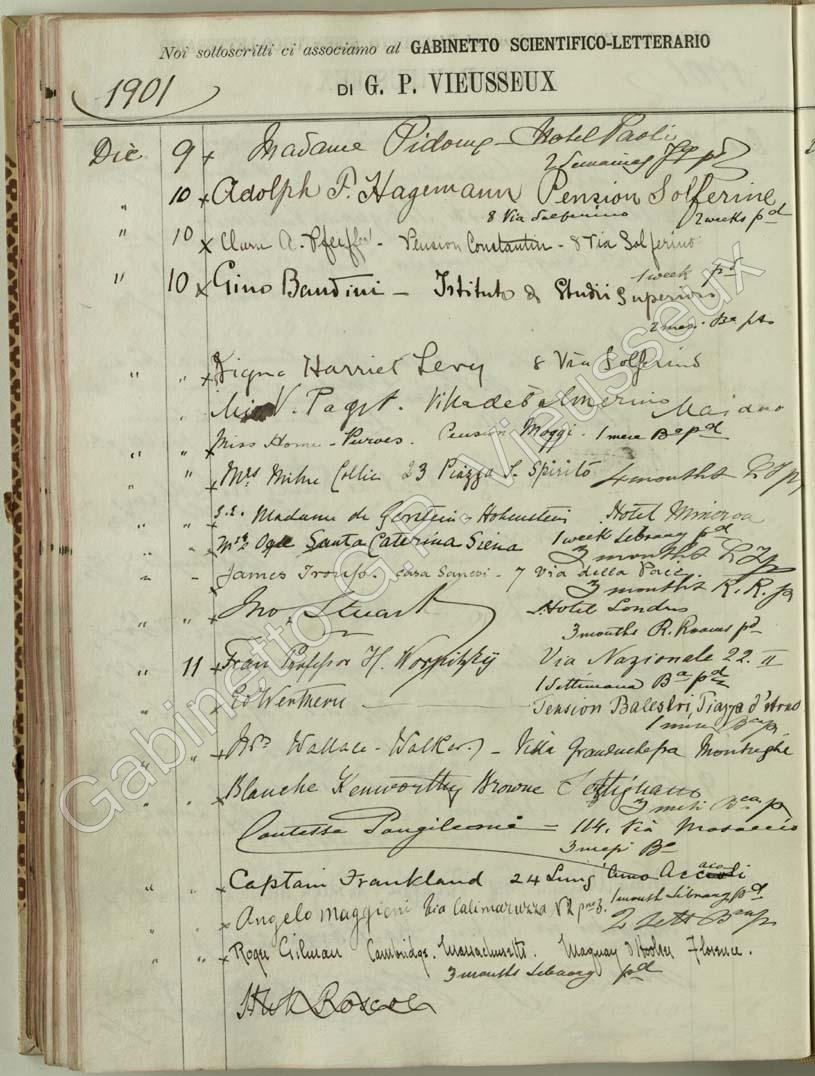 Noi sottoscritti ci associamo al GABINETTO SCIENTIFICO-LETTERARIO
1901
DI G. P. VIEUSSEUX
Dic 9 x Madame Hotel Paoli
2 Semaines pd
" 10 x Adolph F. Hagemann Pension Solferino
8 Via Solferino 2 weeks pd
" 10 x Clara A. Pfeiffer - Pension Constantin - 8 Via Solferino
1 week pd
" 10 x Gino Bandini - Istituto di Studii Superiori
2 mesi Ba
" " x Signa Harriet Levy 8 Via Solferino
" Miss V. Paget. Villa Palmerino Maiano
" " x Miss Home-Purves. Pension Moggi. 1 mese Ba pd
" " x Mrs Milne Collie 23 Piazza S. Spirito 4 months
" " x S.E. Madame de Hohenstein Hotel Minerva
1 week Library pd
" " x Mrs Santa Caterina Siena
3 months
" " James - Casa - 7 Via della Pace
3 months R. R. p
" " x Jno. Stuart Hotel Londres
3 months R. Rooms pd
" 11 x Frau Professor H. Worpitzky Via Nazionale 22. II
1 Settimana Ba pd
" " x Pension Balestri, Piazza d'Arno
1 mese Ba p
" " x Mrs Wallace-Walker - Villa Granduchessa Montughi
" " x Blanche Kenworthy Browne Settignano
3 mesi Bca p
Contessa = 114. Via Masaccio
3 mesi Ba
" " x Captain Frankland 24 Lung'Arno Acciaoli
1 month Library pd
" " x Angelo Maggioni Via Calimaruzza No 2 pno 3.
2 Sett
" " x Roger Gilman Cambridge. Massachusetts. Maquay & Hooker Florence.
3 months Library pd
Roscoe
Gabinetto G.P. Vieusseux